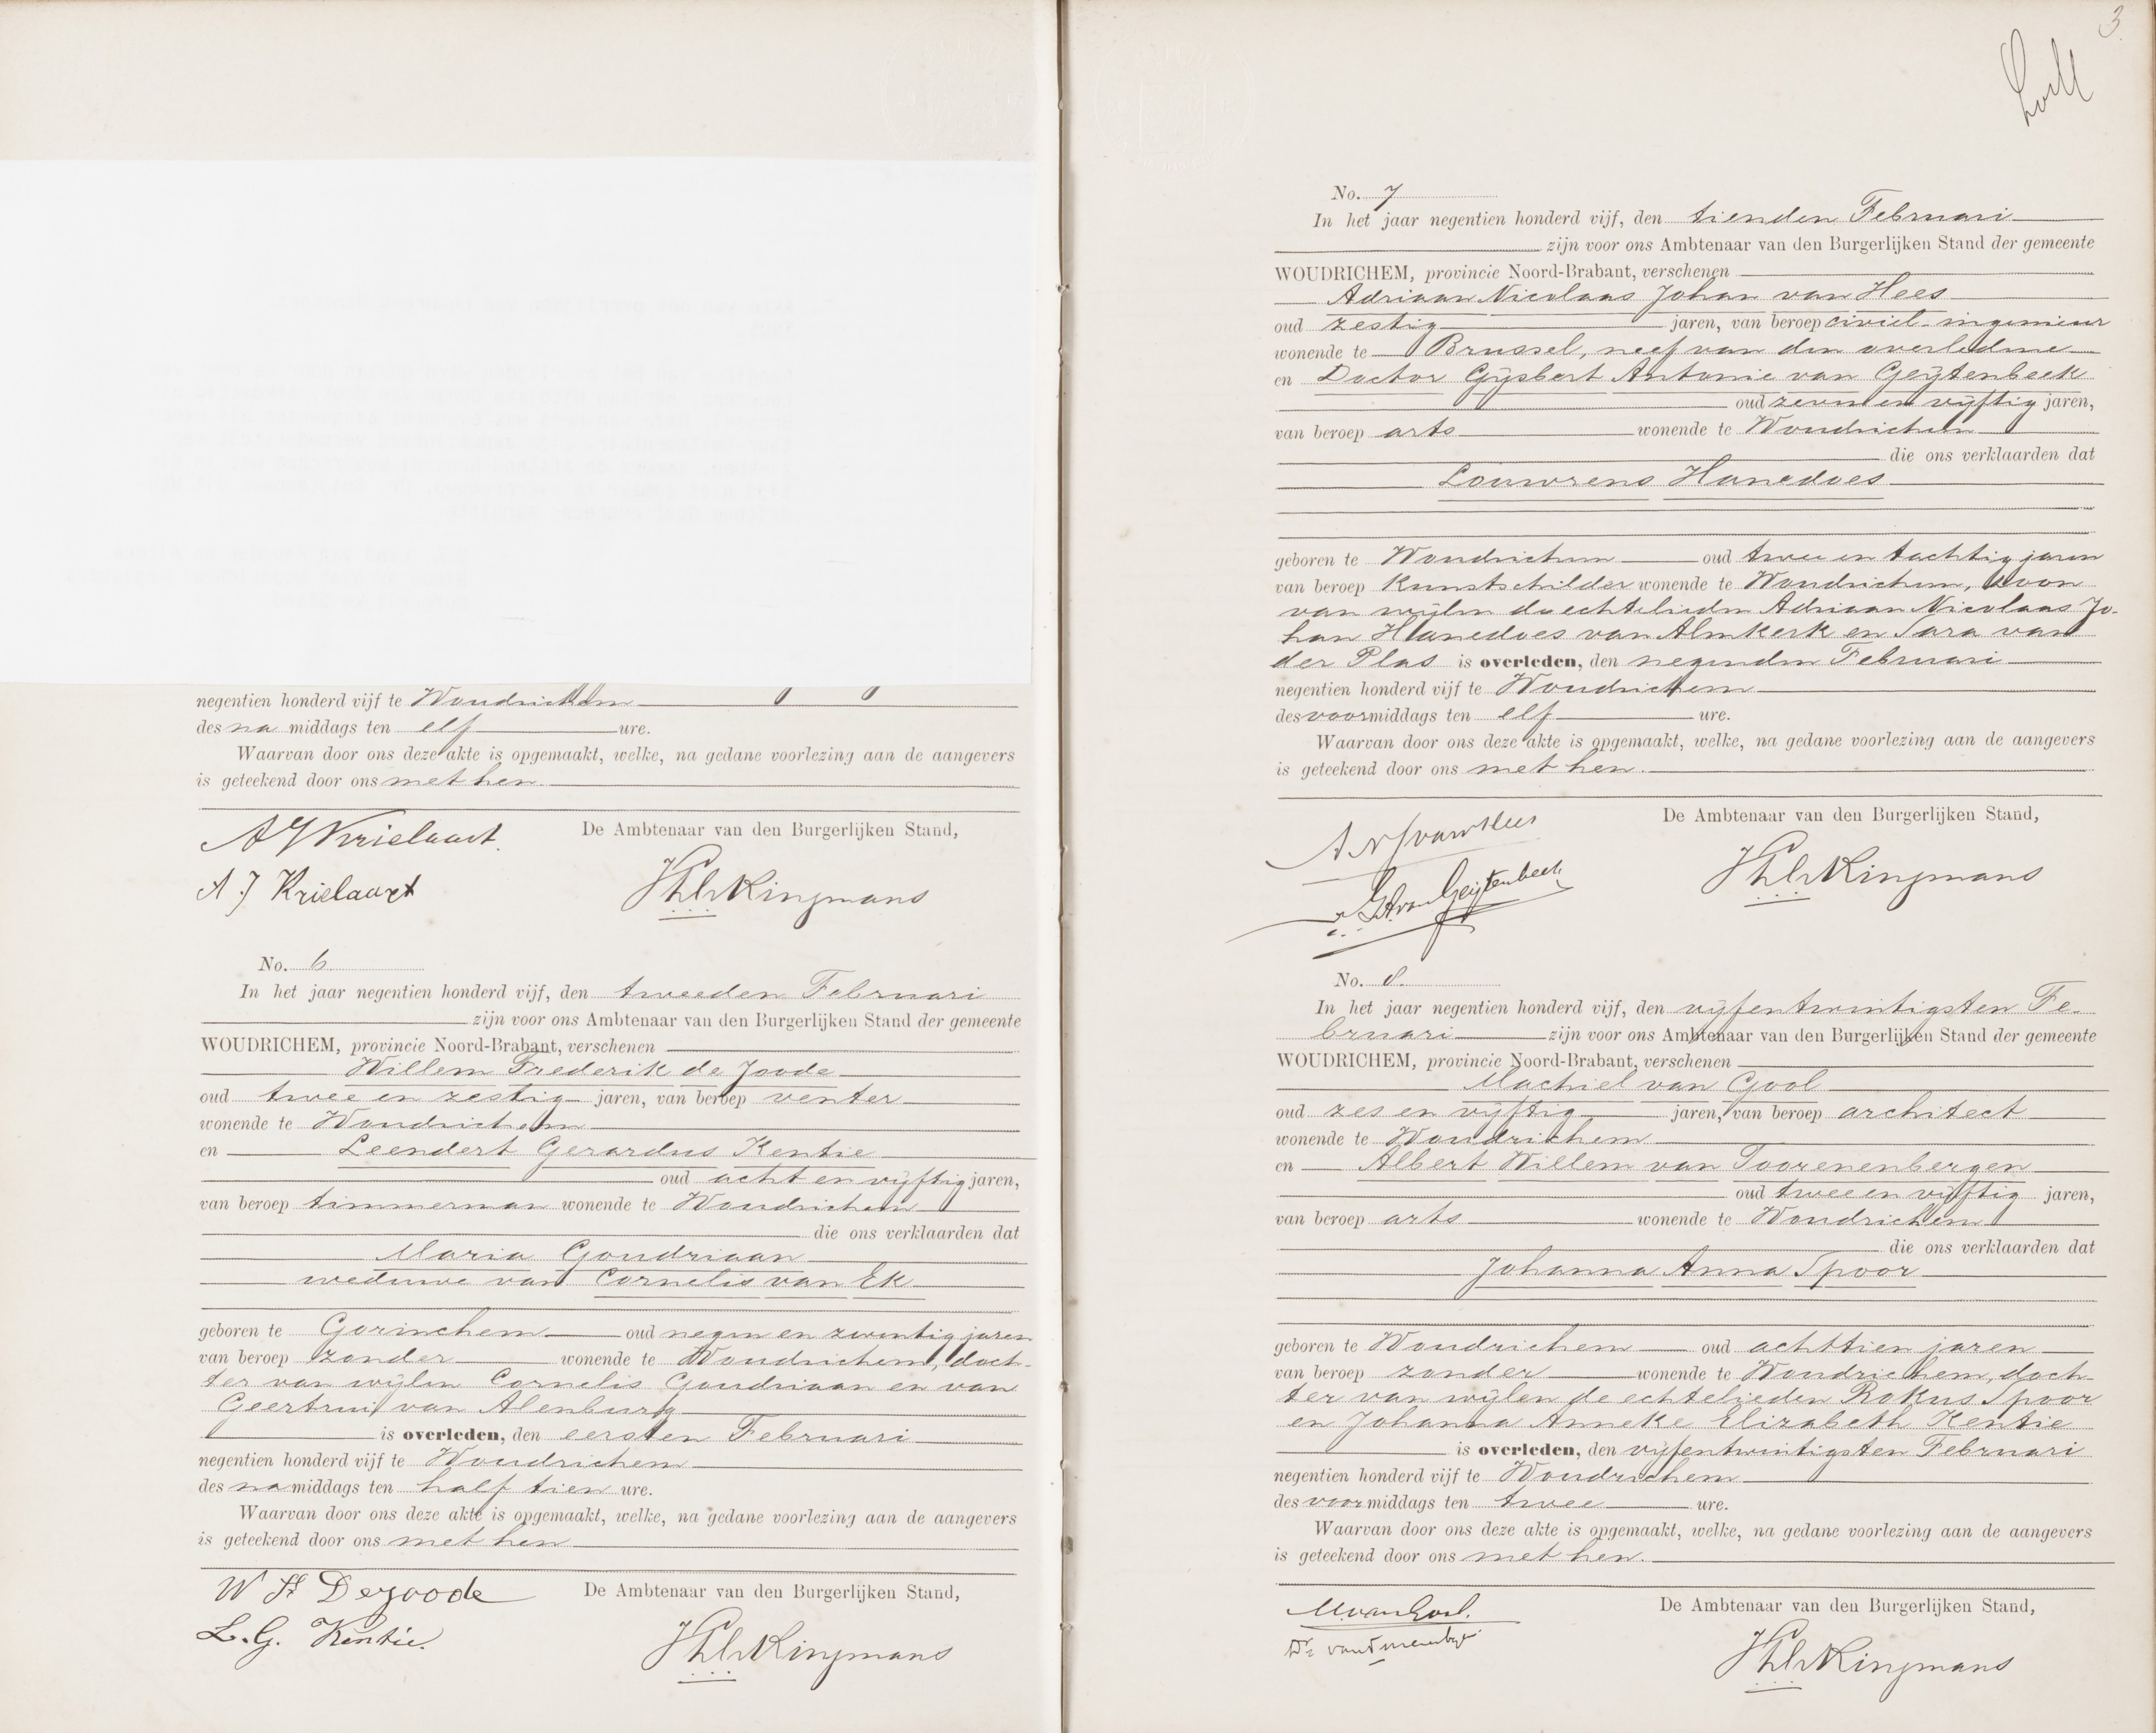 negentien honderd vijf te Woudrichem
des na middags ten elf ure.
Waarvan door ons deze akte is opgemaakt, welke, na gedane voorlezing aan de aangevers
is geteekend door ons met hen.
De Ambtenaar van den Burgerlijken Stand,
A J Krielaart.
A J Krielaart
Kingmans
No. 6
In het jaar negentien honderd vijf, den tweeden Februari
zijn voor ons Ambtenaar van den Burgerlijken Stand der gemeente
WOUDRICHEM, provincie Noord-Brabant, verschenen
Willem Frederik de Joode
oud twee en zestig jaren, van beroep venter
wonende te Woudrichem
en Leendert Gerardus Kentie
oud acht en vijftig jaren,
van beroep timmerman wonende te Woudrichem
die ons verklaarden dat
Maria Goudriaan
weduwe van Cornelis van Ek
geboren te Gorinchem oud negen en zeventig jaren
van beroep zonder wonende te Woudrichem, doch-
ter van wijlen Cornelis Goudriaan en van
Geertrui van Alenburg
is overleden, den eersten Februari
negentien honderd vijf te Woudrichem
des namiddags ten half tien ure.
Waarvan door ons deze akte is opgemaakt, welke, na gedane voorlezing aan de aangevers
is geteekend door ons met hen
W F Dejoode
De Ambtenaar van den Burgerlijken Stand,
L. G. Kentie.
Kingmans
3
No. 7
In het jaar negentien honderd vijf, den tienden Februari
zijn voor ons Ambtenaar van den Burgerlijken Stand der gemeente
WOUDRICHEM, provincie Noord-Brabant, verschenen
Adriaan Nicolaas Johan van Hees
oud zestig jaren, van beroep civiel-ingenieur
wonende te Brussel, neef van den overledene
en Doctor Gijsbert Antonie van Geijtenbeek
oud zeven en vijftig jaren,
van beroep arts wonende te Woudrichem
die ons verklaarden dat
Louwrens Hanedoes
geboren te Woudrichem oud twee en tachtig jaren
van beroep Kunstschilder wonende te Woudrichem, zoon
van wijlen de echtelieden Adriaan Nicolaas Jo-
han Hanedoes van Almkerk en Sara van
der Plas is overleden, den negenden Februari
negentien honderd vijf te Woudrichem
des voormiddags ten elf ure.
Waarvan door ons deze akte is opgemaakt, welke, na gedane voorlezing aan de aangevers
is geteekend door ons met hen.
De Ambtenaar van den Burgerlijken Stand,
A N J van Hees
GA van Geijtenbeek
Kingmans
No. 8.
In het jaar negentien honderd vijf, den vijfentwintigsten Fe-
bruari zijn voor ons Ambtenaar van den Burgerlijken Stand der gemeente
WOUDRICHEM, provincie Noord-Brabant, verschenen
Machiel van Gool
oud zes en vijftig jaren, van beroep architect
wonende te Woudrichem
en Albert Willem van Toorenenbergen
oud twee en vijftig jaren,
van beroep arts wonende te Woudrichem
die ons verklaarden dat
Johanna Anna Spoor
geboren te Woudrichem oud achttien jaren
van beroep zonder wonende te Woudrichem, doch-
ter van wijlen de echtelieden Rokus Spoor
en Johanna Anneke Elizabeth Kentie
is overleden, den vijfentwintigsten Februari
negentien honderd vijf te Woudrichem
des voormiddags ten twee ure.
Waarvan door ons deze akte is opgemaakt, welke, na gedane voorlezing aan de aangevers
is geteekend door ons met hen.
M. van Gool.
De Ambtenaar van den Burgerlijken Stand,
Kingmans